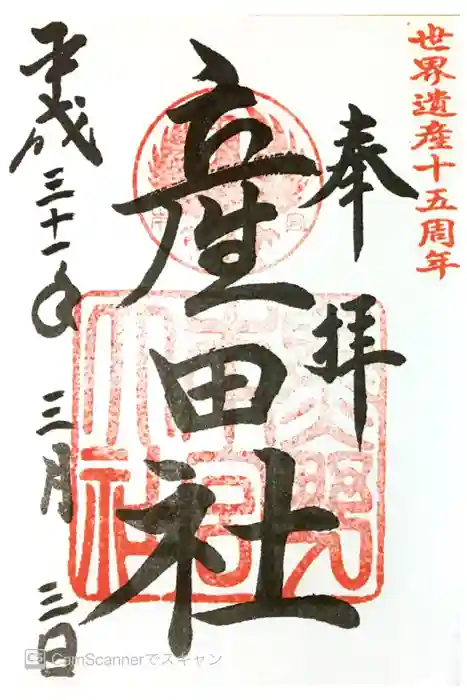 世界遺産十五周年
奉拝
産田社
平成三十一年
三月
三日
CamScannerでスキャン